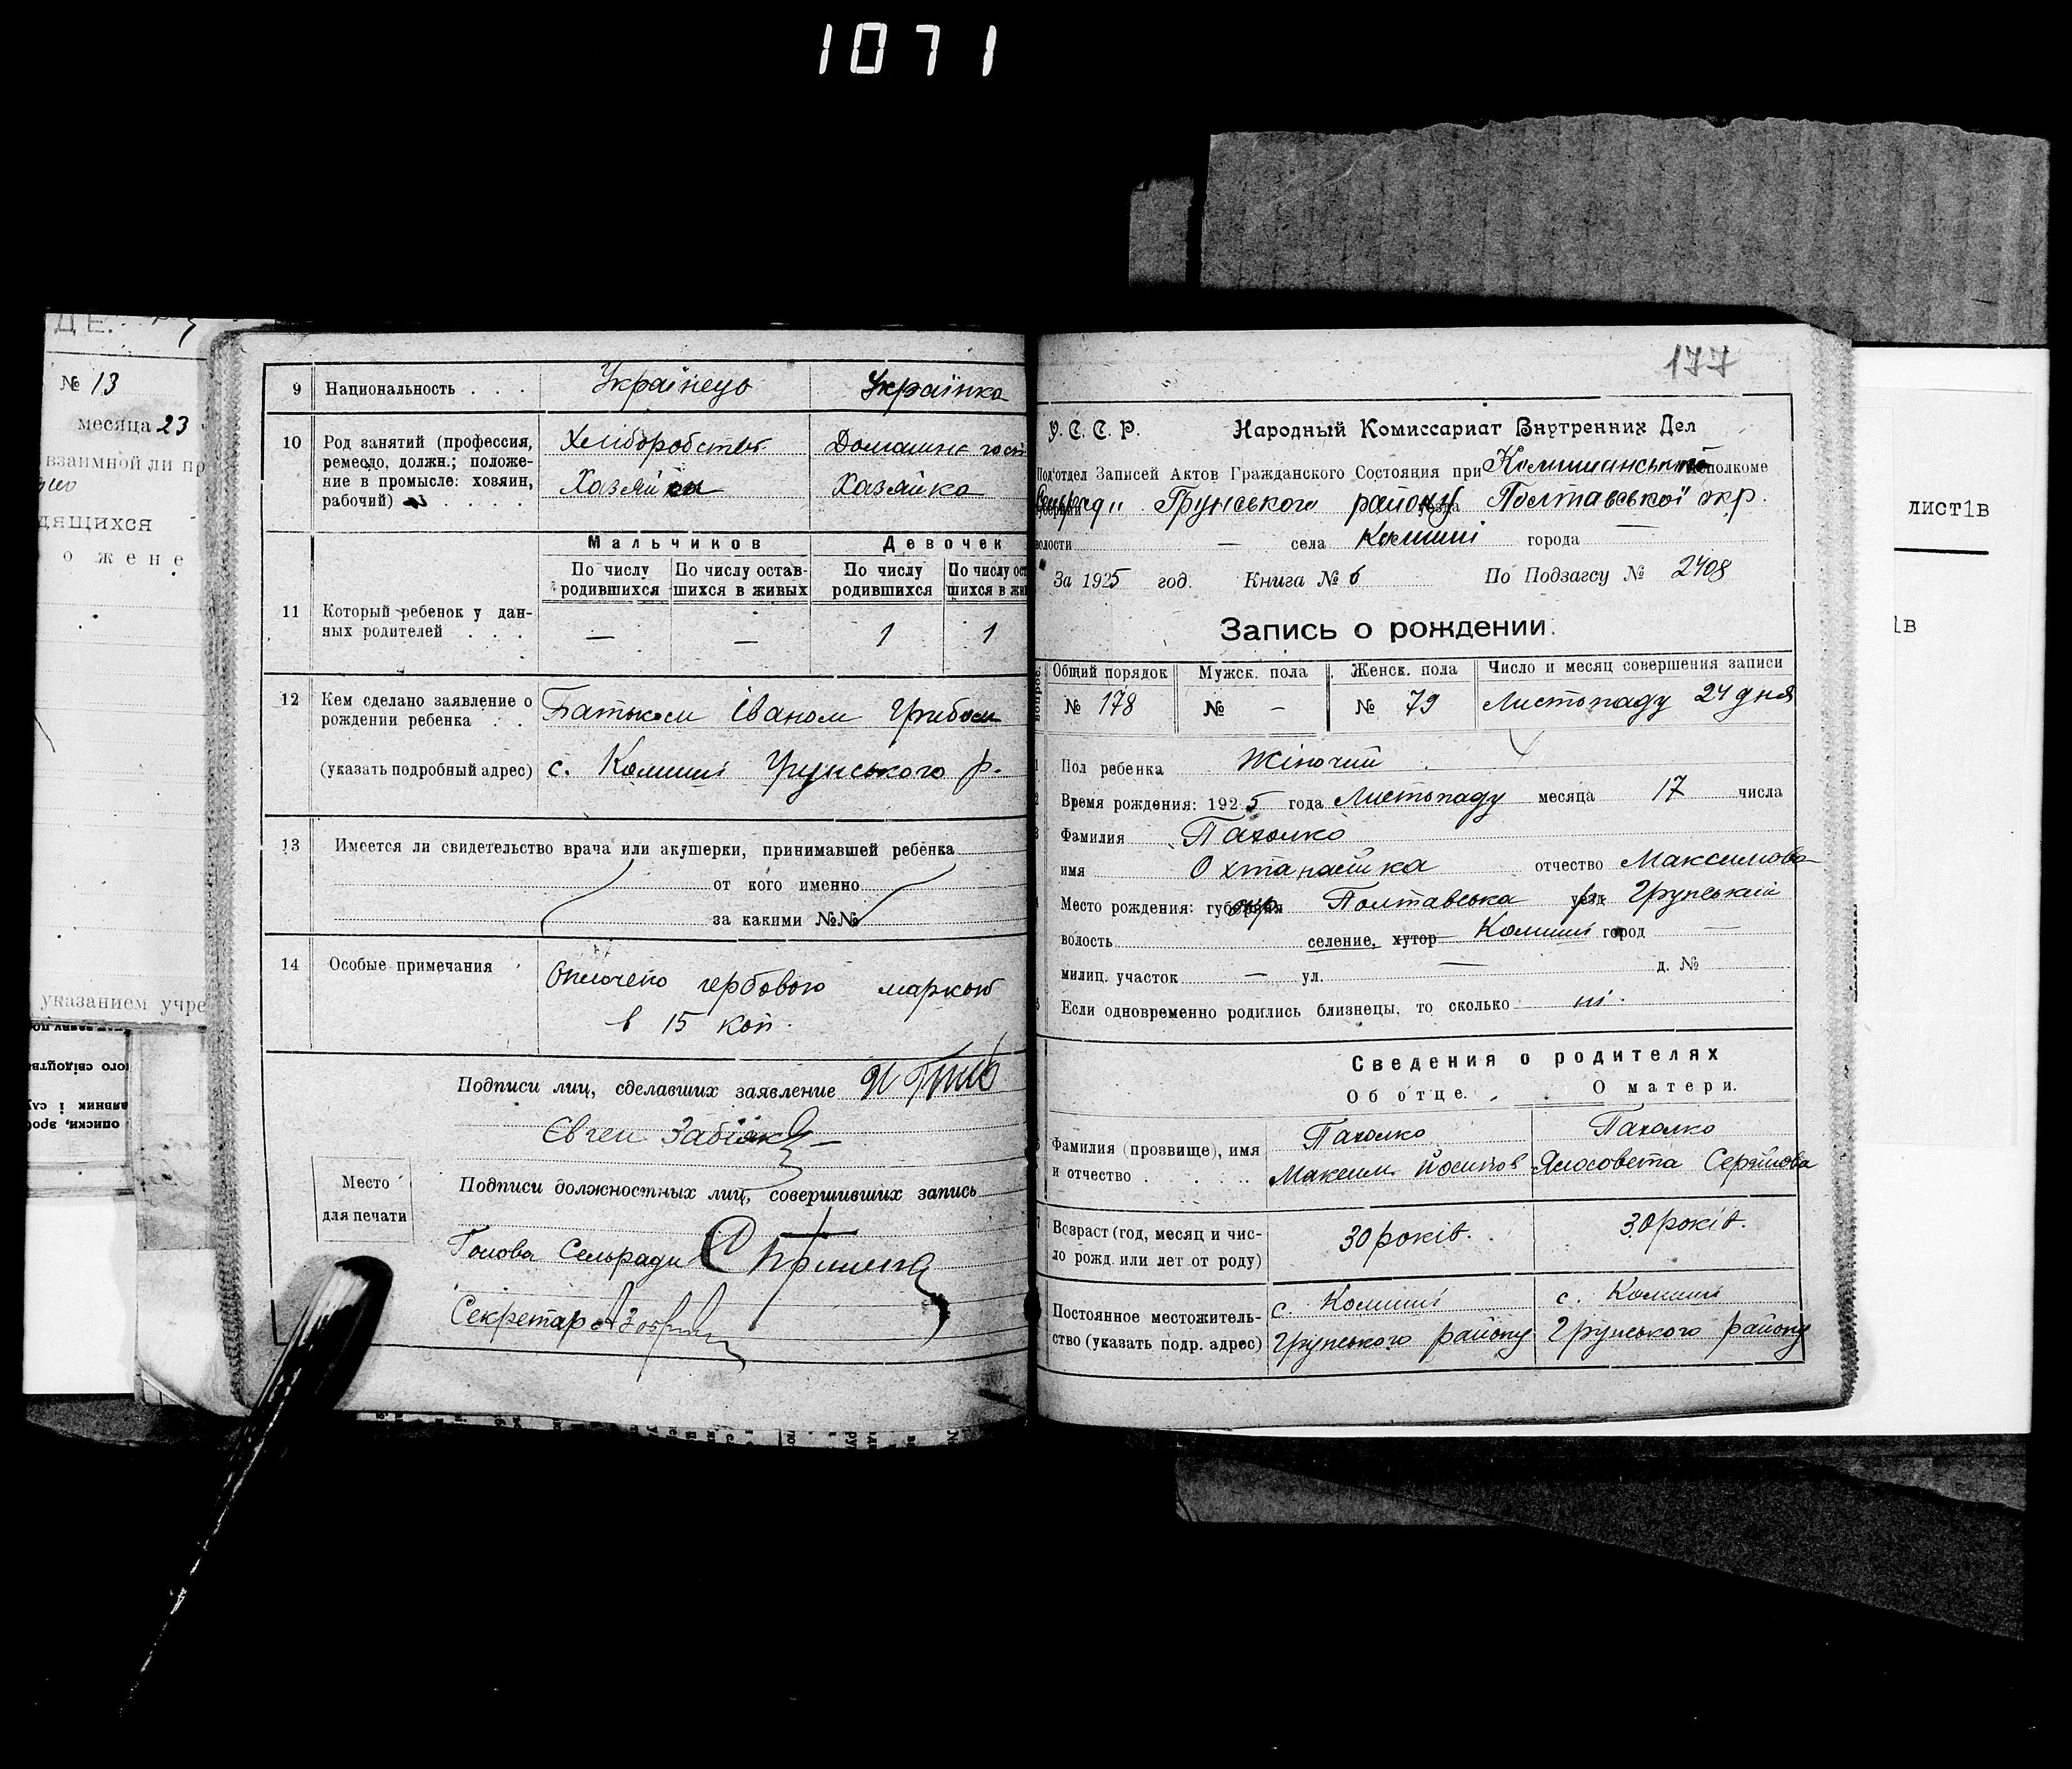 1071
ДЕ.
№ 13
месяца 23
взаимной ли пр
дящихся
о жене
указанием учре
9 Национальность . . . Українець Українка
10 Род занятий (профессия, ремесло, должн.; положе-
ние в промысле: хозяин,
рабочий) . . . .
Хліборобство Домашнє госп
Хазяйин Хазяйка
Мальчиков Девочек
По числу родившихся По числу остав-шихся в живых По числу родившихся По числу ост шихся в жи
11 Который ребенок у дан-
ных родителей . . . — — 1 1
12 Кем сделано заявление о
рождении ребенка . . Батьком Іваном Грибом
(указать подробный адрес) с. Комиші Грунського р.
13 Имеется ли свидетельство врача или акушерки, принимавшей ребёнка
от кого именно
за какими №№
14 Особые примечания Оплочено гербовою маркою
в 15 коп.
Подписи лиц, сделавших заявление И Гриб
Євген Забіяка
Место
для печати
Подписи должностных лиц, совершивших запись
Голова Сельради
Секретар
177
У. С. С. Р. Народный Комиссариат Внутренних Дел
Под'отдел Записей Актов Гражданского Состояния при Комишанській исполкоме
Сельради Грунського району Полтавської окр.
волости — села Комиші города —
За 1925 год. Книга № 6 По Подзагсу № 2408
Запись о рождении.
Общий порядок Мужск. пола Женск. пола Число и месяц совершения записи
№ 178 № - № 79 Листопаду 24 дня
Пол ребенка Жіночий
Время рождения: 1925 года Листопаду месяца 17 числа
Фамилия Пахолко
имя отчество Максимова
Место рождения: губерния окр. Полтавська уезд Грунський
волость селение, хутор Комиші город —
милиц. участок — ул. — д. №
Если одновременно родились близнецы, то сколько ні.
Сведения о родителях
Об отце. О матери.
Фамилия (прозвище), имя Пахолко Пахолко
и отчество . . . . Максим Йосипов Ялосовета Сергіїова
Возраст (год, месяц и чис-
ло рожд. или лет от роду) 30 років. 30 років.
Постоянное местожитель- с. Комиші с. Комиші
ство (указать подр. адрес) Грунського району Грунського району
лист1в
1в